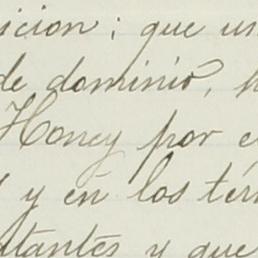 icion; que un
de dominio,
Honey por e
y en los tér
tantes y que